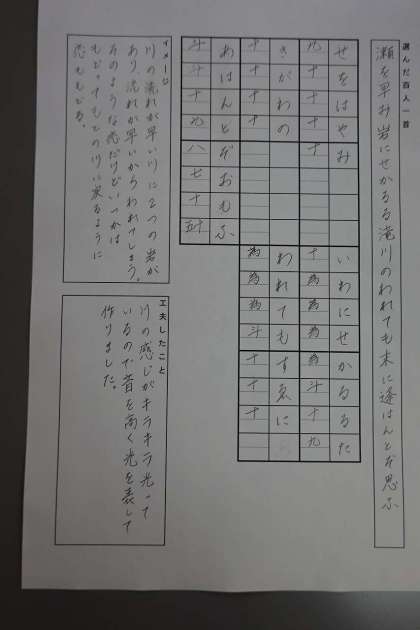 選んだ百人一首
瀬を早み岩にせかるる滝川のわれても末に逢はんとぞ思ふ
せをはやみ
九十十十
いわにせかるるた
十為為為斗十九
きがわの
十十十十
われてもすゑに
為為為斗十十十
あはんとぞおもふ
斗十十九八七十五
イメージ
川の流れが早い川に2つの岩が
あり、流れが早いからわれてしまう。
そのような恋だけどいつかは
もどってもとの川に戻るように
恋ももどる。
工夫したこと
川の感じがキラキラ光って
いるので音を高く光を表して
作りました。